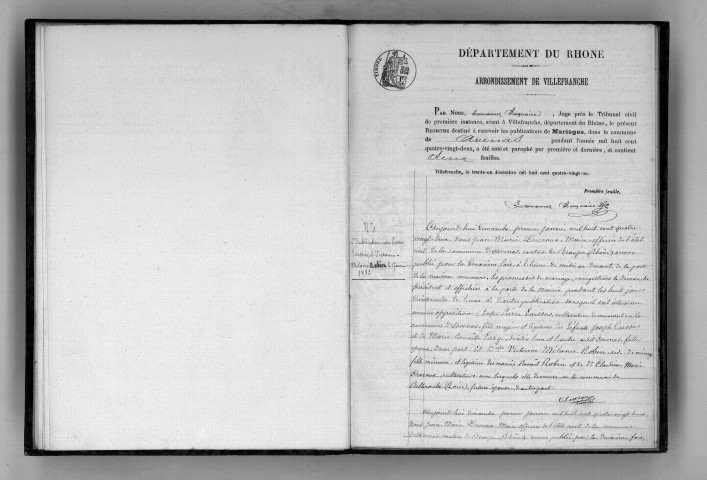 DÉPARTEMENT DU RHONE
ARRONDISSEMENT DE VILLEFRANCHE
PAR NOUS, , Juge près le Tribunal civil
de première instance, séant à Villefranche, département du Rhône, le présent
REGISTRE destiné à recevoir les publications de Mariages, dans la commune
de Avenas pendant l'année mil huit cent
quatre-vingt-deux, a été coté et paraphé par première et dernière, et contient
deux feuilles.
Villefranche, le trente-un décembre mil huit cent quatre-vingt-un.
Première feuille.
N° 1
1882
Aujourd'hui Dimanche premier janvier mil huit cent quatre
vingt deux, Nous Jean Marie Maire officier de l'état
civil de la commune d'Avenas canton de Beaujeu (Rhône) avons
publié pour la fois, à l'heure de midi au devant de la porte
de la maison commune, les promesses de mariage, enregistrées le dimanche
précédent et affichées à la porte de la mairie pendant les huit jours
d'intervalle de l'une à l'autre publication, sans qu'il soit
aucune opposition; Entre Pierre cultivateur demeurant en la
commune d'Avenas, fils majeur et légitime des défunts Joseph
et de Marie Benoîte l'un et l'autre audit Avenas, futur
époux d'une part; Et Delle Victorine Mélanie Robin
fille mineure et légitime des mariés Benoît Robin et de De Claudine Marie
cultivateurs avec lesquels elle demeure en la commune de
Belleroche (Loire), future épouse d'autre part.
Aujourd'hui dimanche premier janvier mil huit cent quatre vingt deux,
Nous Jean Marie Maire officier de l'état civil de la commune
d'Avenas canton de Beaujeu (Rhône) avons publié pour la fois,